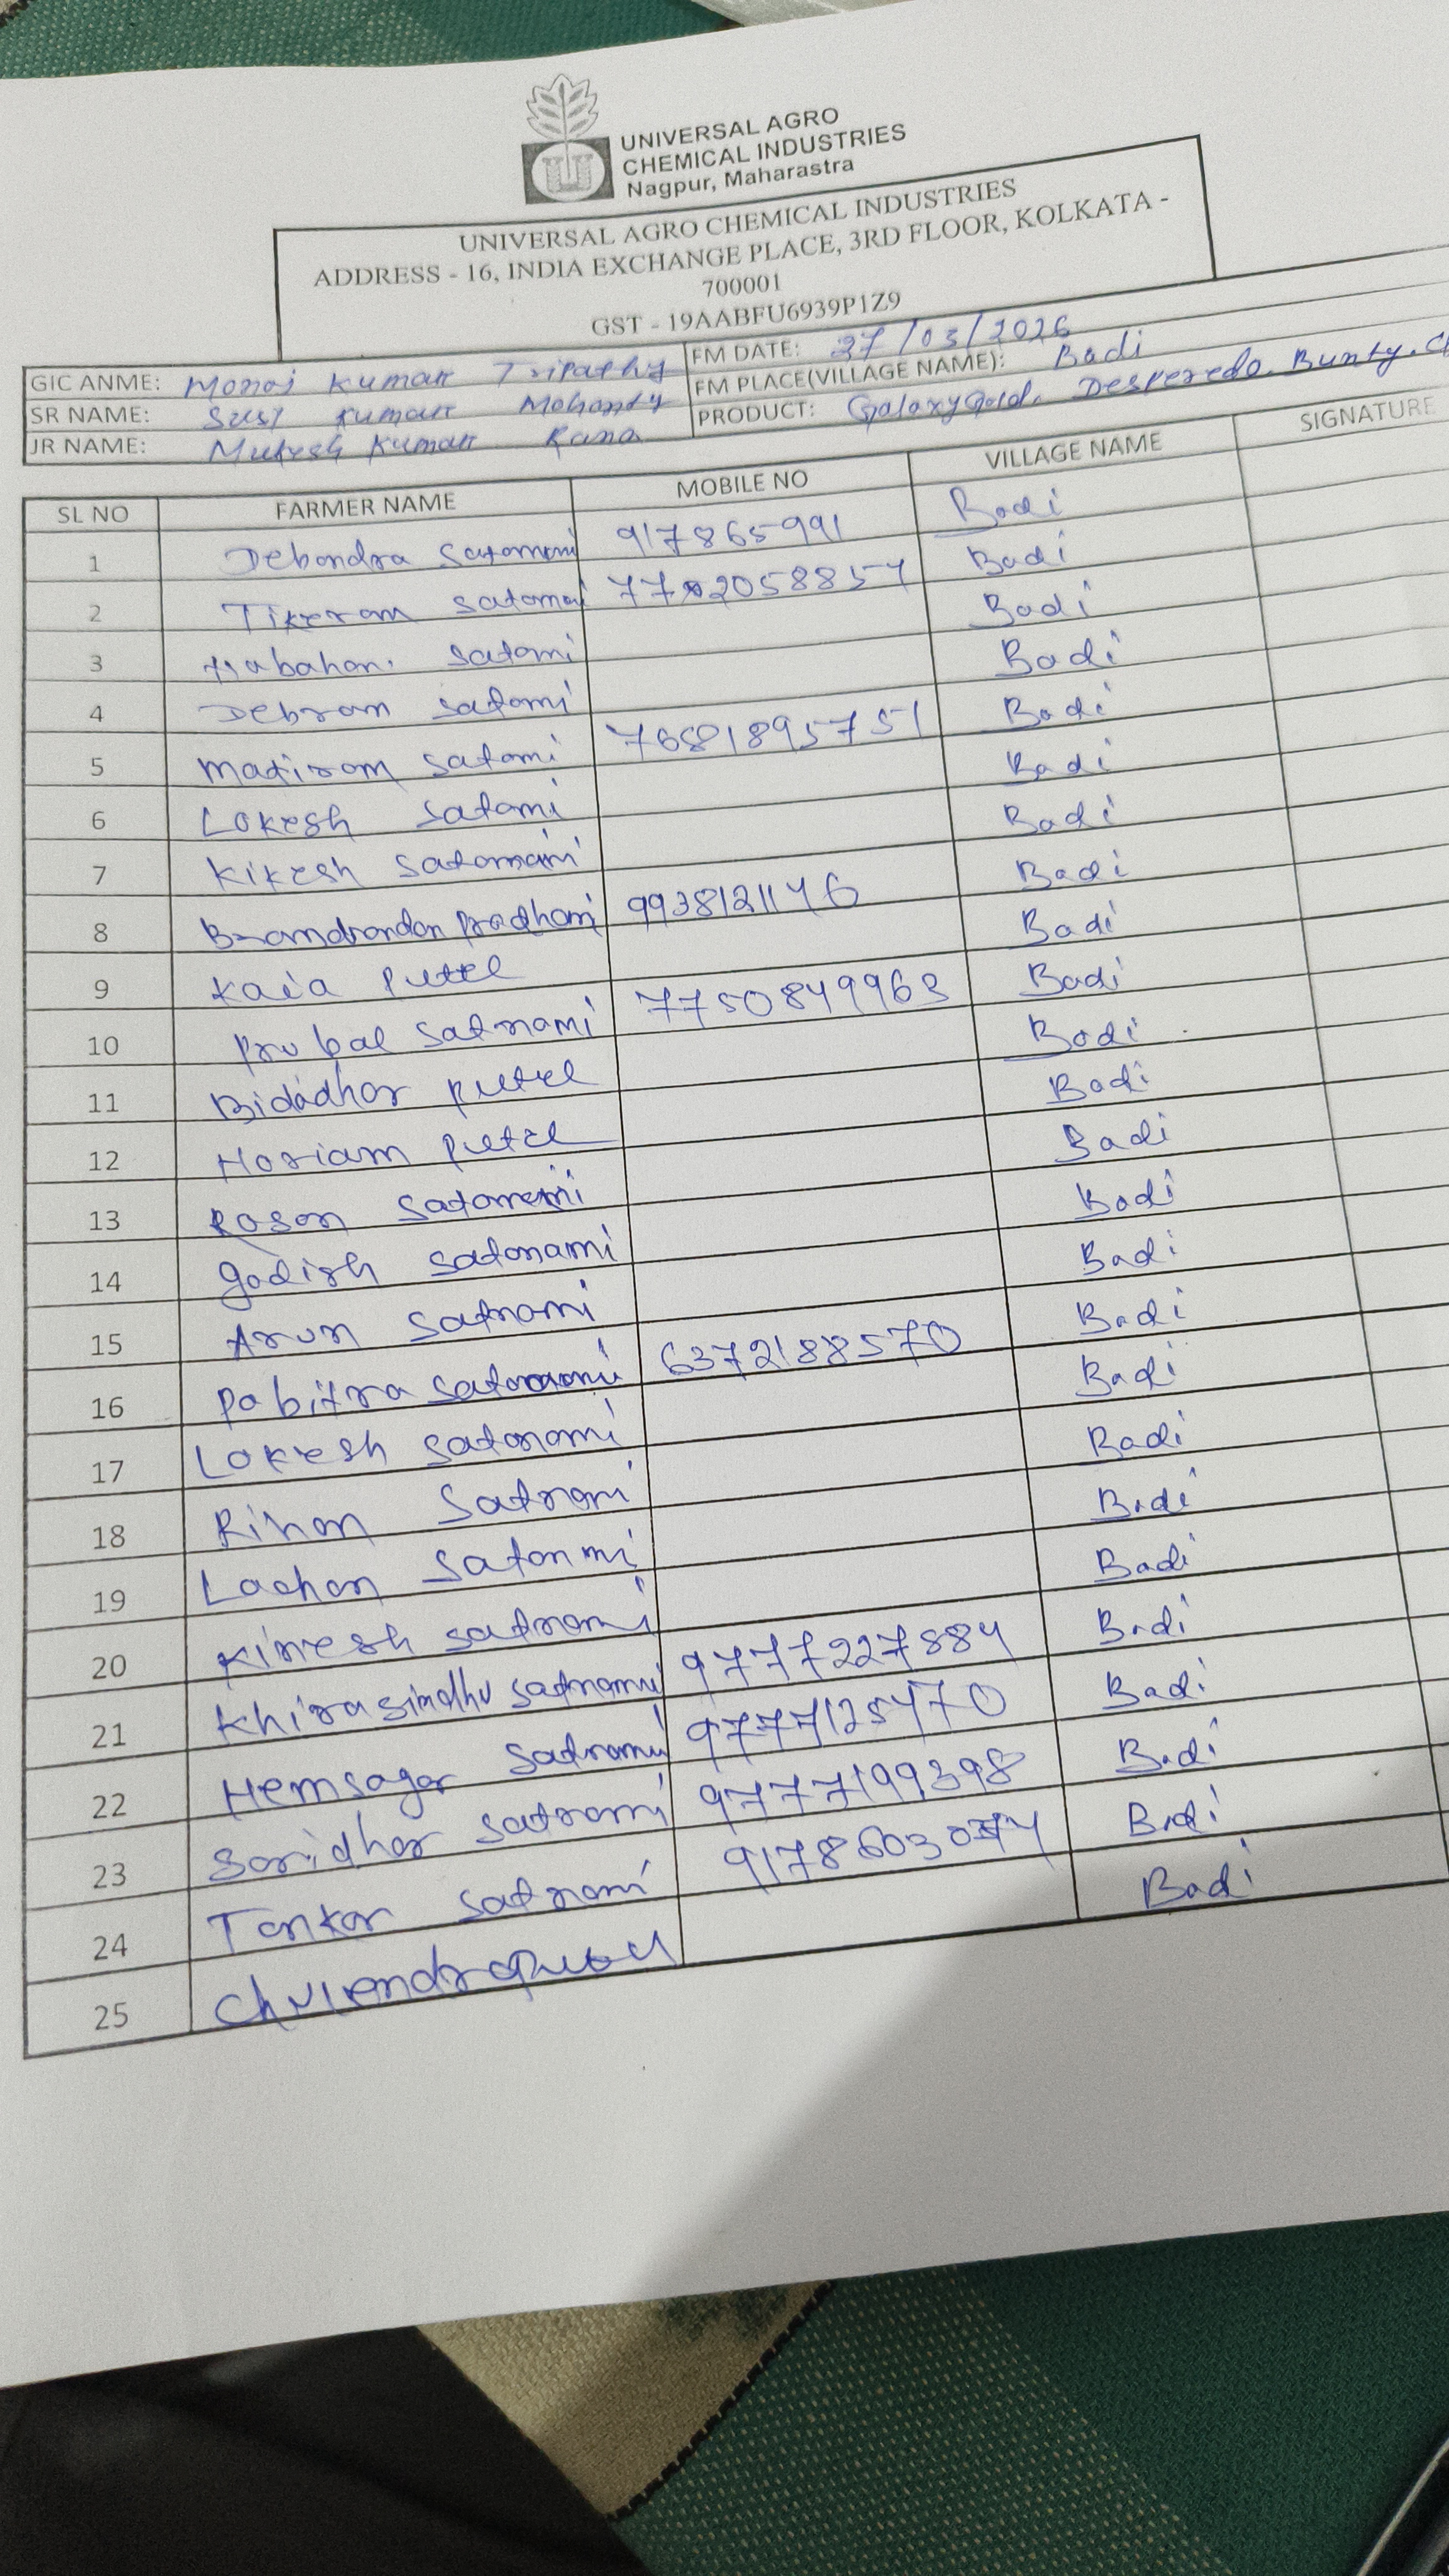 UNIVERSAL AGRO
CHEMICAL INDUSTRIES
Nagpur, Maharastra
UNIVERSAL AGRO CHEMICAL INDUSTRIES
ADDRESS - 16, INDIA EXCHANGE PLACE, 3RD FLOOR, KOLKATA -
700001
GST - 19AABFU6939P1Z9
GIC ANME: Monoj Kumar Tripathy FM DATE: 27/03/2026
SR NAME: Kumar Mohanty FM PLACE(VILLAGE NAME): Badi
JR NAME: Mukesh Kumar Rana PRODUCT: Galaxygold. Desperedo. Bunty.
SL NO FARMER NAME MOBILE NO VILLAGE NAME SIGNATURE
1 Debondra Satomeni 917865991 Badi
2 Tikeram Satomai Badi
3 Satomi Badi
4 Debram Satomi Badi
5 Matiram Satomi 7681895751 Badi
6 Lokesh Satomi Badi
7 Kikesh Satomami Badi
8 9938121146 Badi
9 Kaia Putel Badi
10 Prubal Satnami 7750849963 Badi
11 Bidadhar Putel Badi
12 Horiam Putel Badi
13 Rason Badi
14 Gadish Satonami Badi
15 Arun Satnami Badi
16 Pabitra 6372188570 Badi
17 Lokesh Satonami Badi
18 Rihan Satnami Badi
19 Lachan Satonmi Badi
20 Kimesh Satnami Badi
21 Khirasindhu Satnami 9777227884 Badi
22 Hemsagar Satnami 9777125470 Badi
23 Soridhar Satnami 9777199398 Badi
24 Tankar Satnami Badi
25 Badi